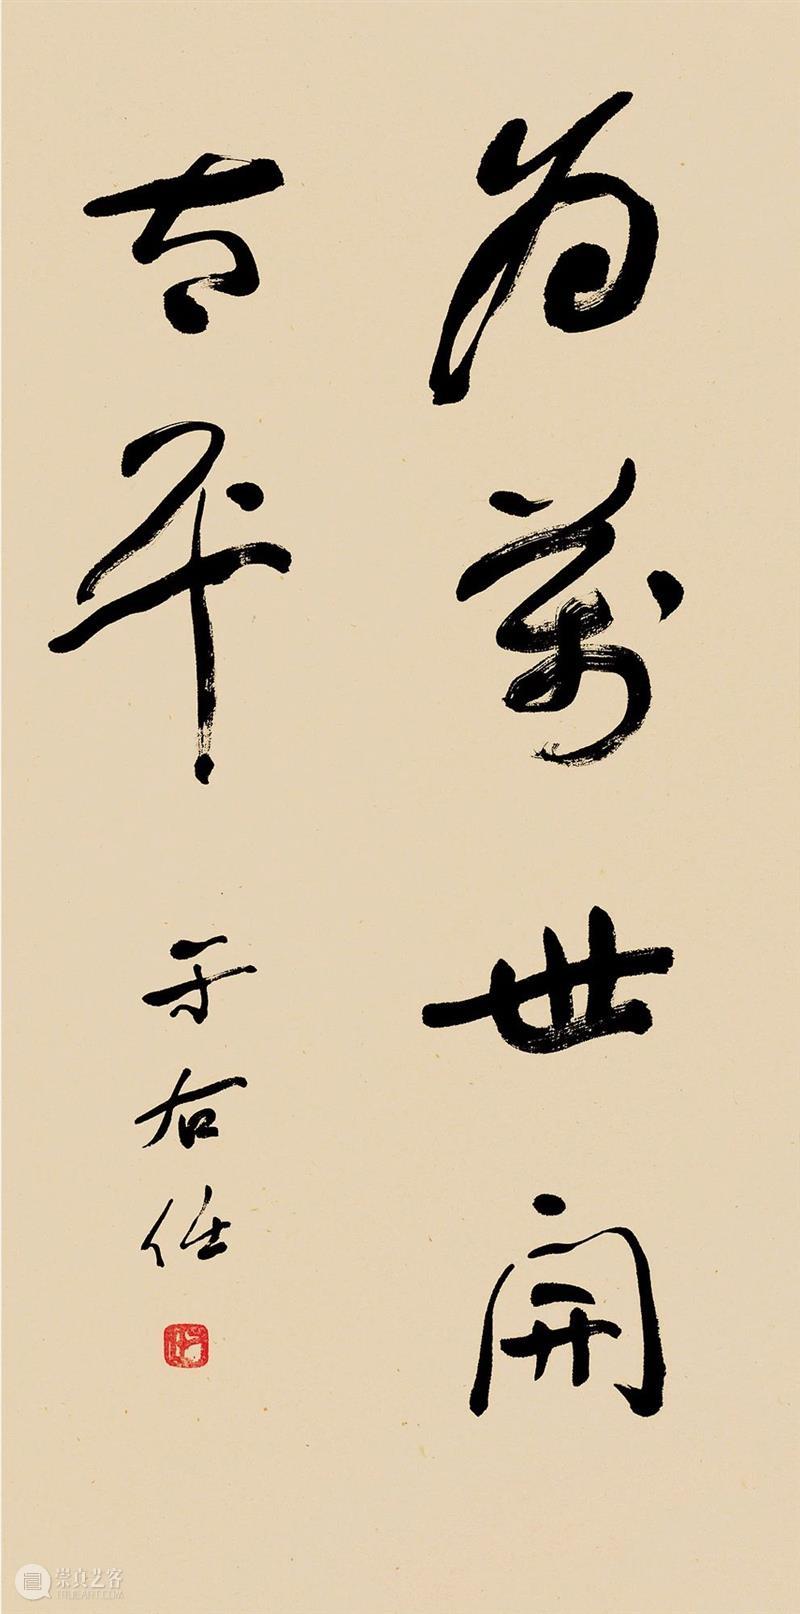 為萬世開
太平
于右任
崇真艺客
TRUEART.COM